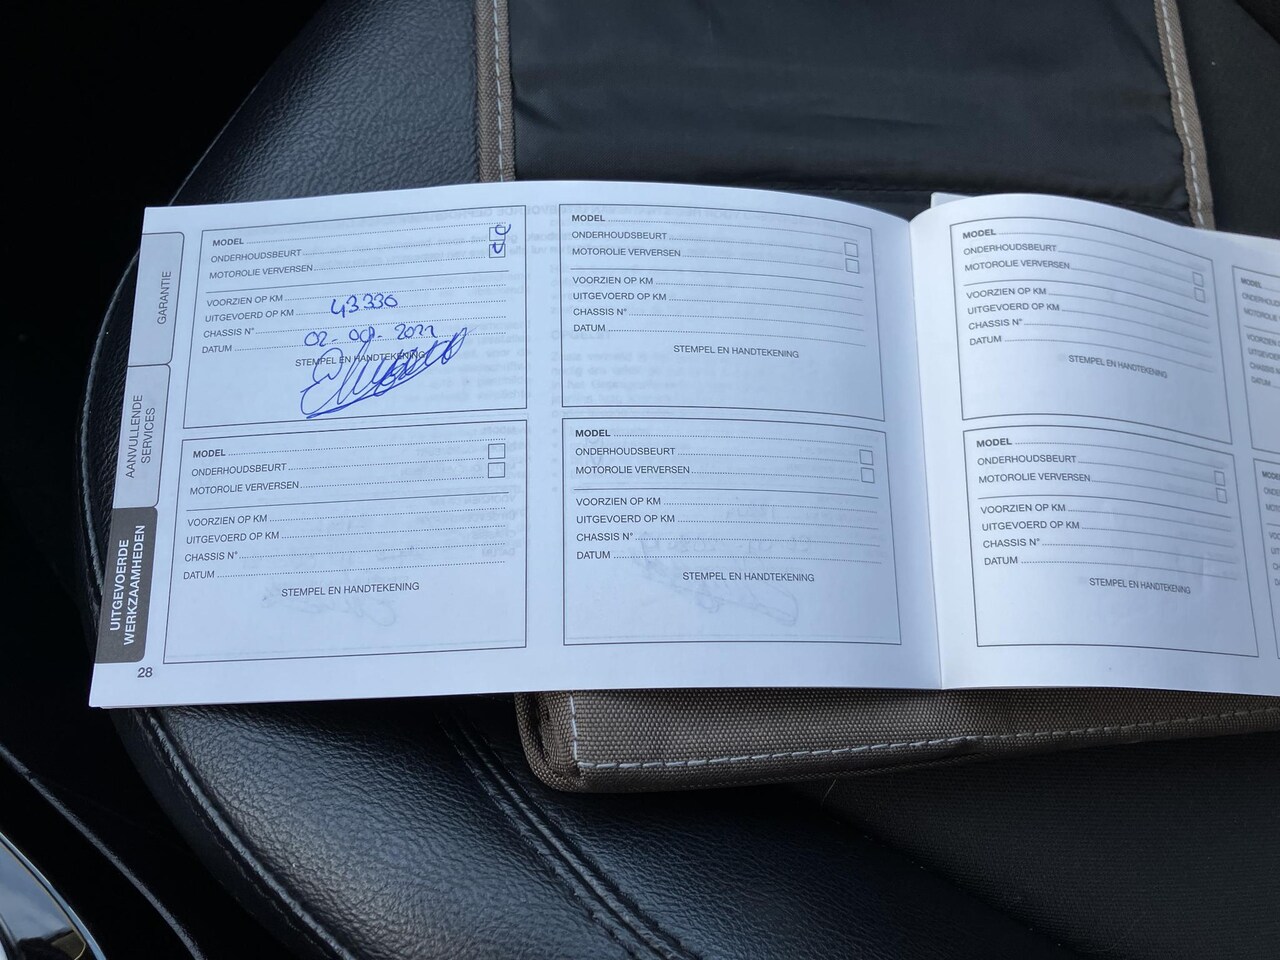 GARANTIE
AANVULLENDE
SERVICES
UITGEVOERDE
WERKZAAMHEDEN
28
MODEL
ONDERHOUDSBEURT
MOTOROLIE VERVERSEN
VOORZIEN OP KM
UITGEVOERD OP KM 43330
CHASSIS N°
DATUM
STEMPEL EN HANDTEKENING
MODEL
ONDERHOUDSBEURT
MOTOROLIE VERVERSEN
VOORZIEN OP KM
UITGEVOERD OP KM
CHASSIS N°
DATUM
STEMPEL EN HANDTEKENING
MODEL
ONDERHOUDSBEURT
MOTOROLIE VERVERSEN
VOORZIEN OP KM
UITGEVOERD OP KM
CHASSIS N°
DATUM
STEMPEL EN HANDTEKENING
MODEL
ONDERHOUDSBEURT
MOTOROLIE VERVERSEN
VOORZIEN OP KM
UITGEVOERD OP KM
CHASSIS N°
DATUM
STEMPEL EN HANDTEKENING
MODEL
ONDERHOUDSBEURT
MOTOROLIE VERVERSEN
VOORZIEN OP KM
UITGEVOERD OP KM
CHASSIS N°
DATUM
STEMPEL EN HANDTEKENING
MODEL
ONDERHOUDSBEURT
MOTOROLIE VERVERSEN
VOORZIEN OP KM
UITGEVOERD OP KM
CHASSIS N°
DATUM
STEMPEL EN HANDTEKENING